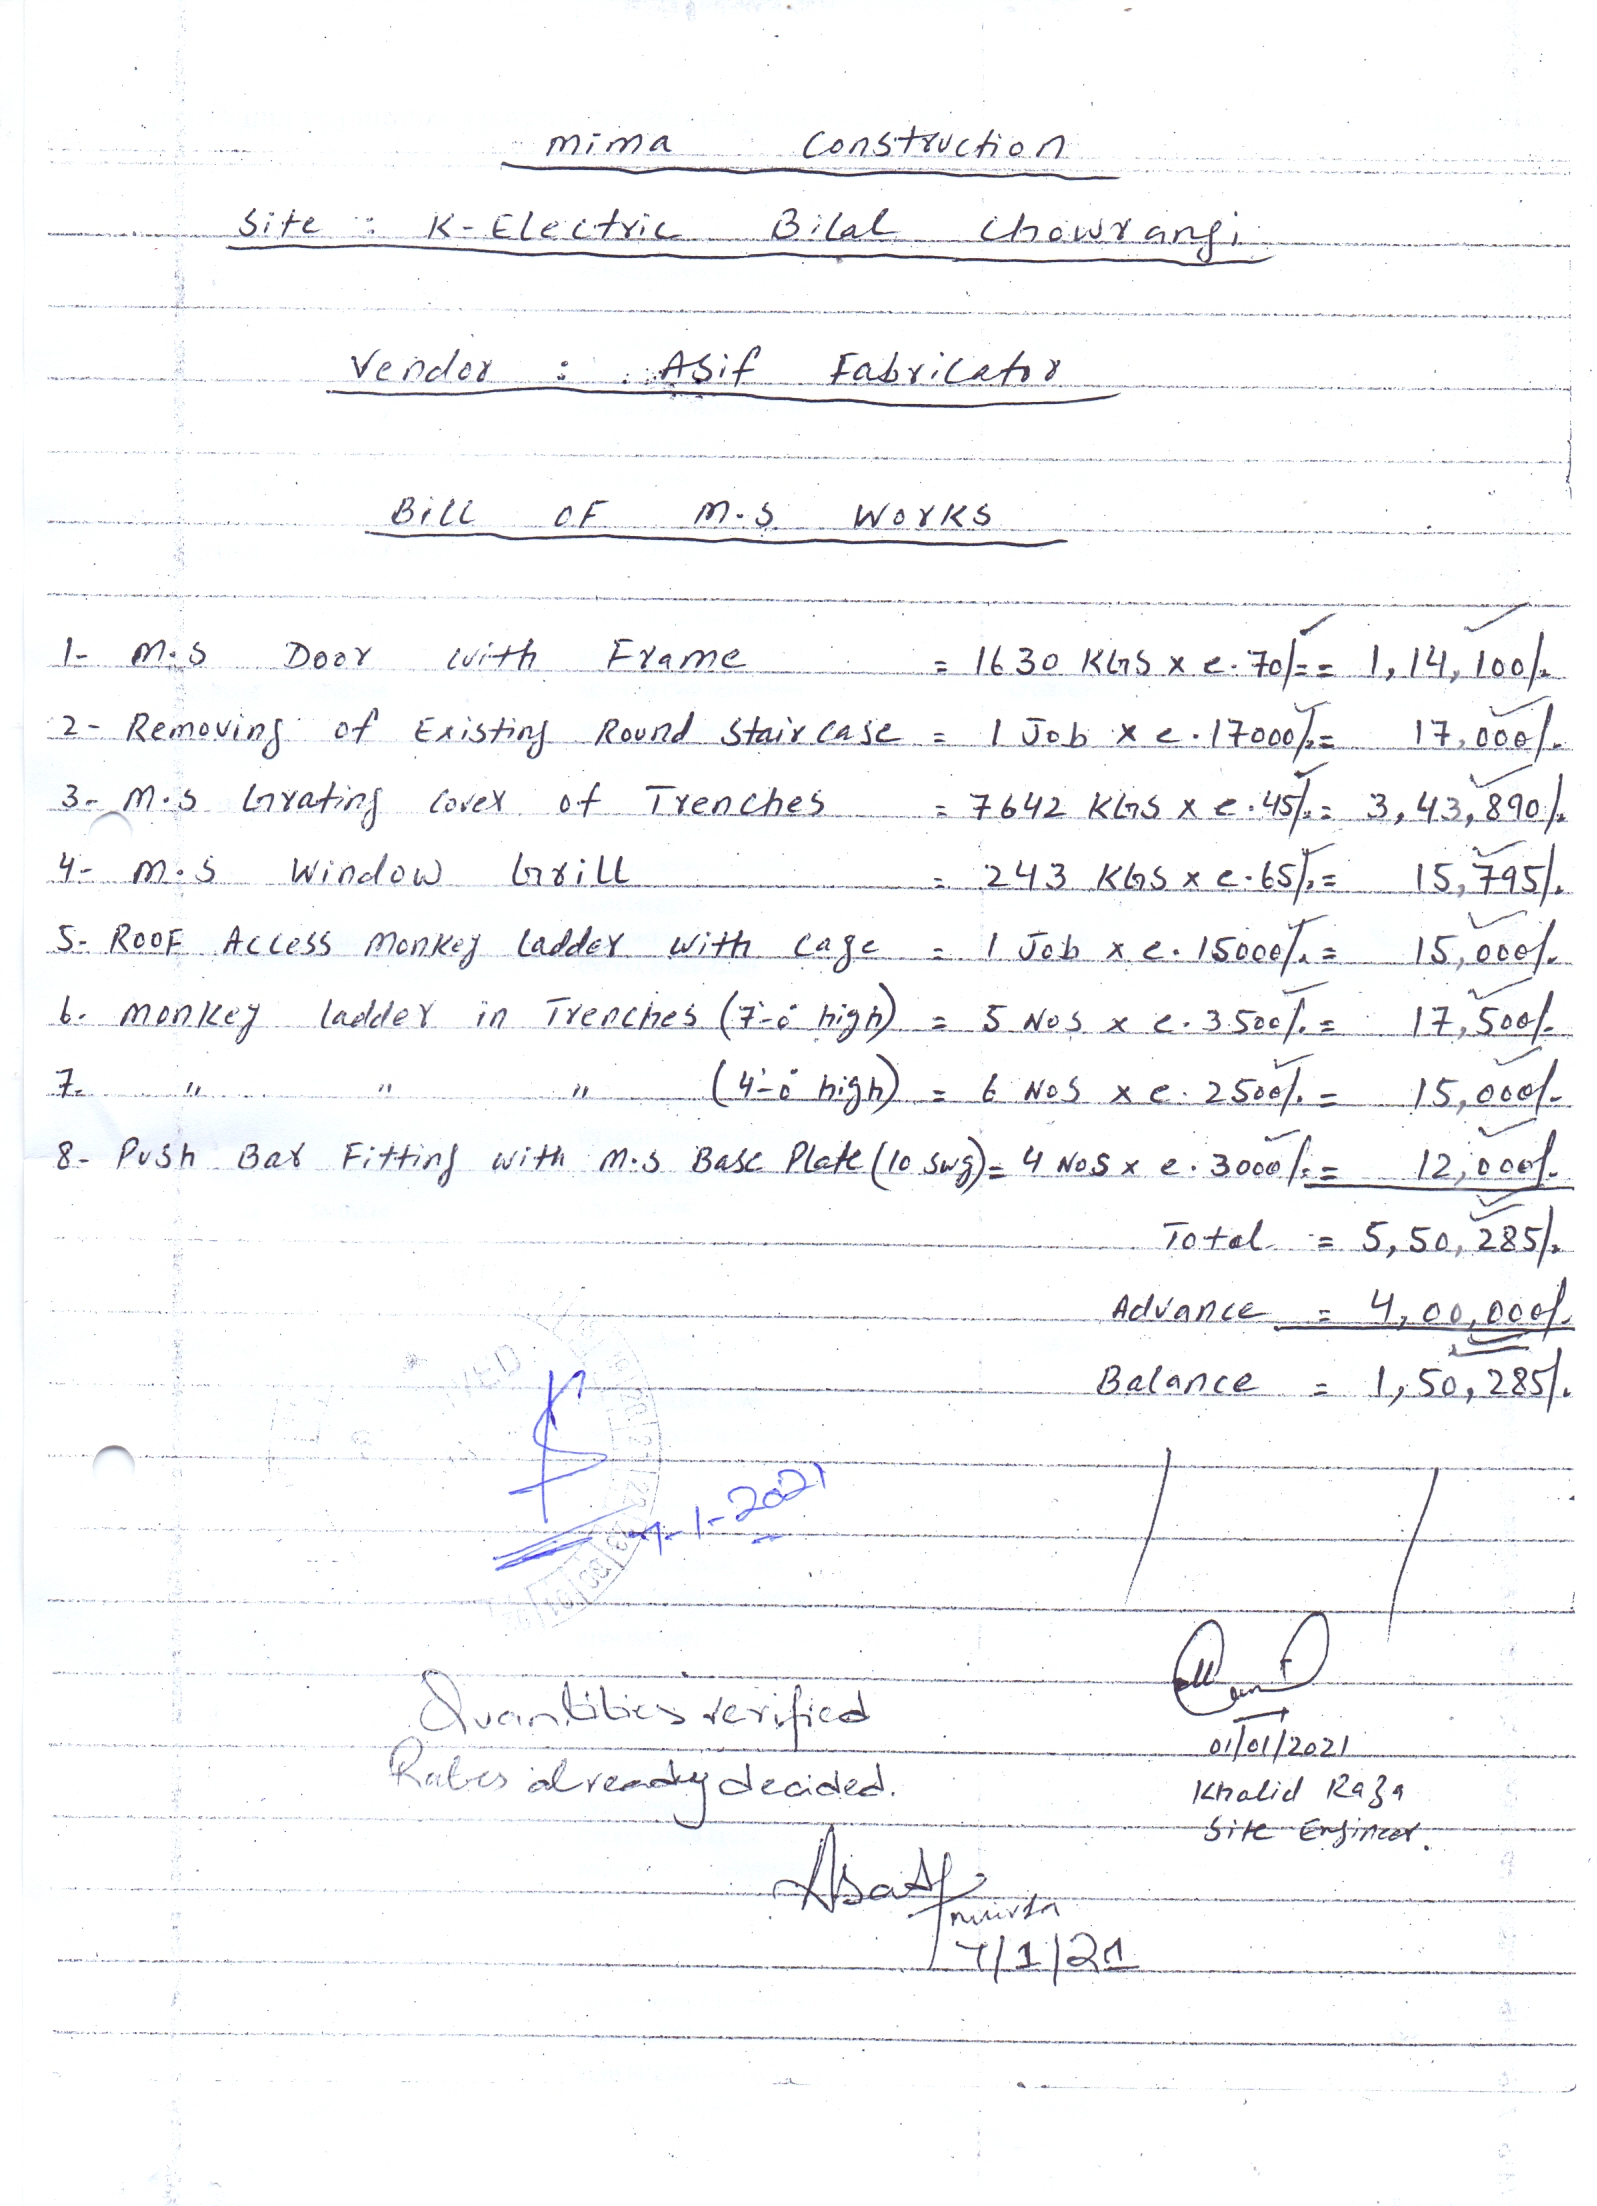 Mima Construction
Site : K-Electric Bilal Chowrangi
Vendor : Asif Fabricator
Bill OF M.S Works
1- M.S Door with Frame = 1630 KGS x @.70/- = 1,14,100/-
2- Removing of Existing Round Staircase = 1 Job x @.17000/- = 17,000/-
3- M.S Grating Cover of Trenches = 7642 KGS x @.45/- = 3,43,890/-
4- M.S Window Grill = 243 KGS x @.65/- = 15,795/-
5- Roof Access Monkey Ladder with Cage = 1 Job x @.15000/- = 15,000/-
6- Monkey Ladder in Trenches (7'-0" high) = 5 Nos x @.3500/- = 17,500/-
7- " " " (4'-0" high) = 6 Nos x @.2500/- = 15,000/-
8- Push Bar Fitting with M.S Base Plate (10 swg) = 4 Nos x @.3000/- = 12,000/-
Total = 5,50,285/-
Advance = 4,00,000/-
Balance = 1,50,285/-
7-1-2021
Quantities verified
Rates already decided.
01/01/2021
Khalid Raza
Site Engineer.
7/1/21